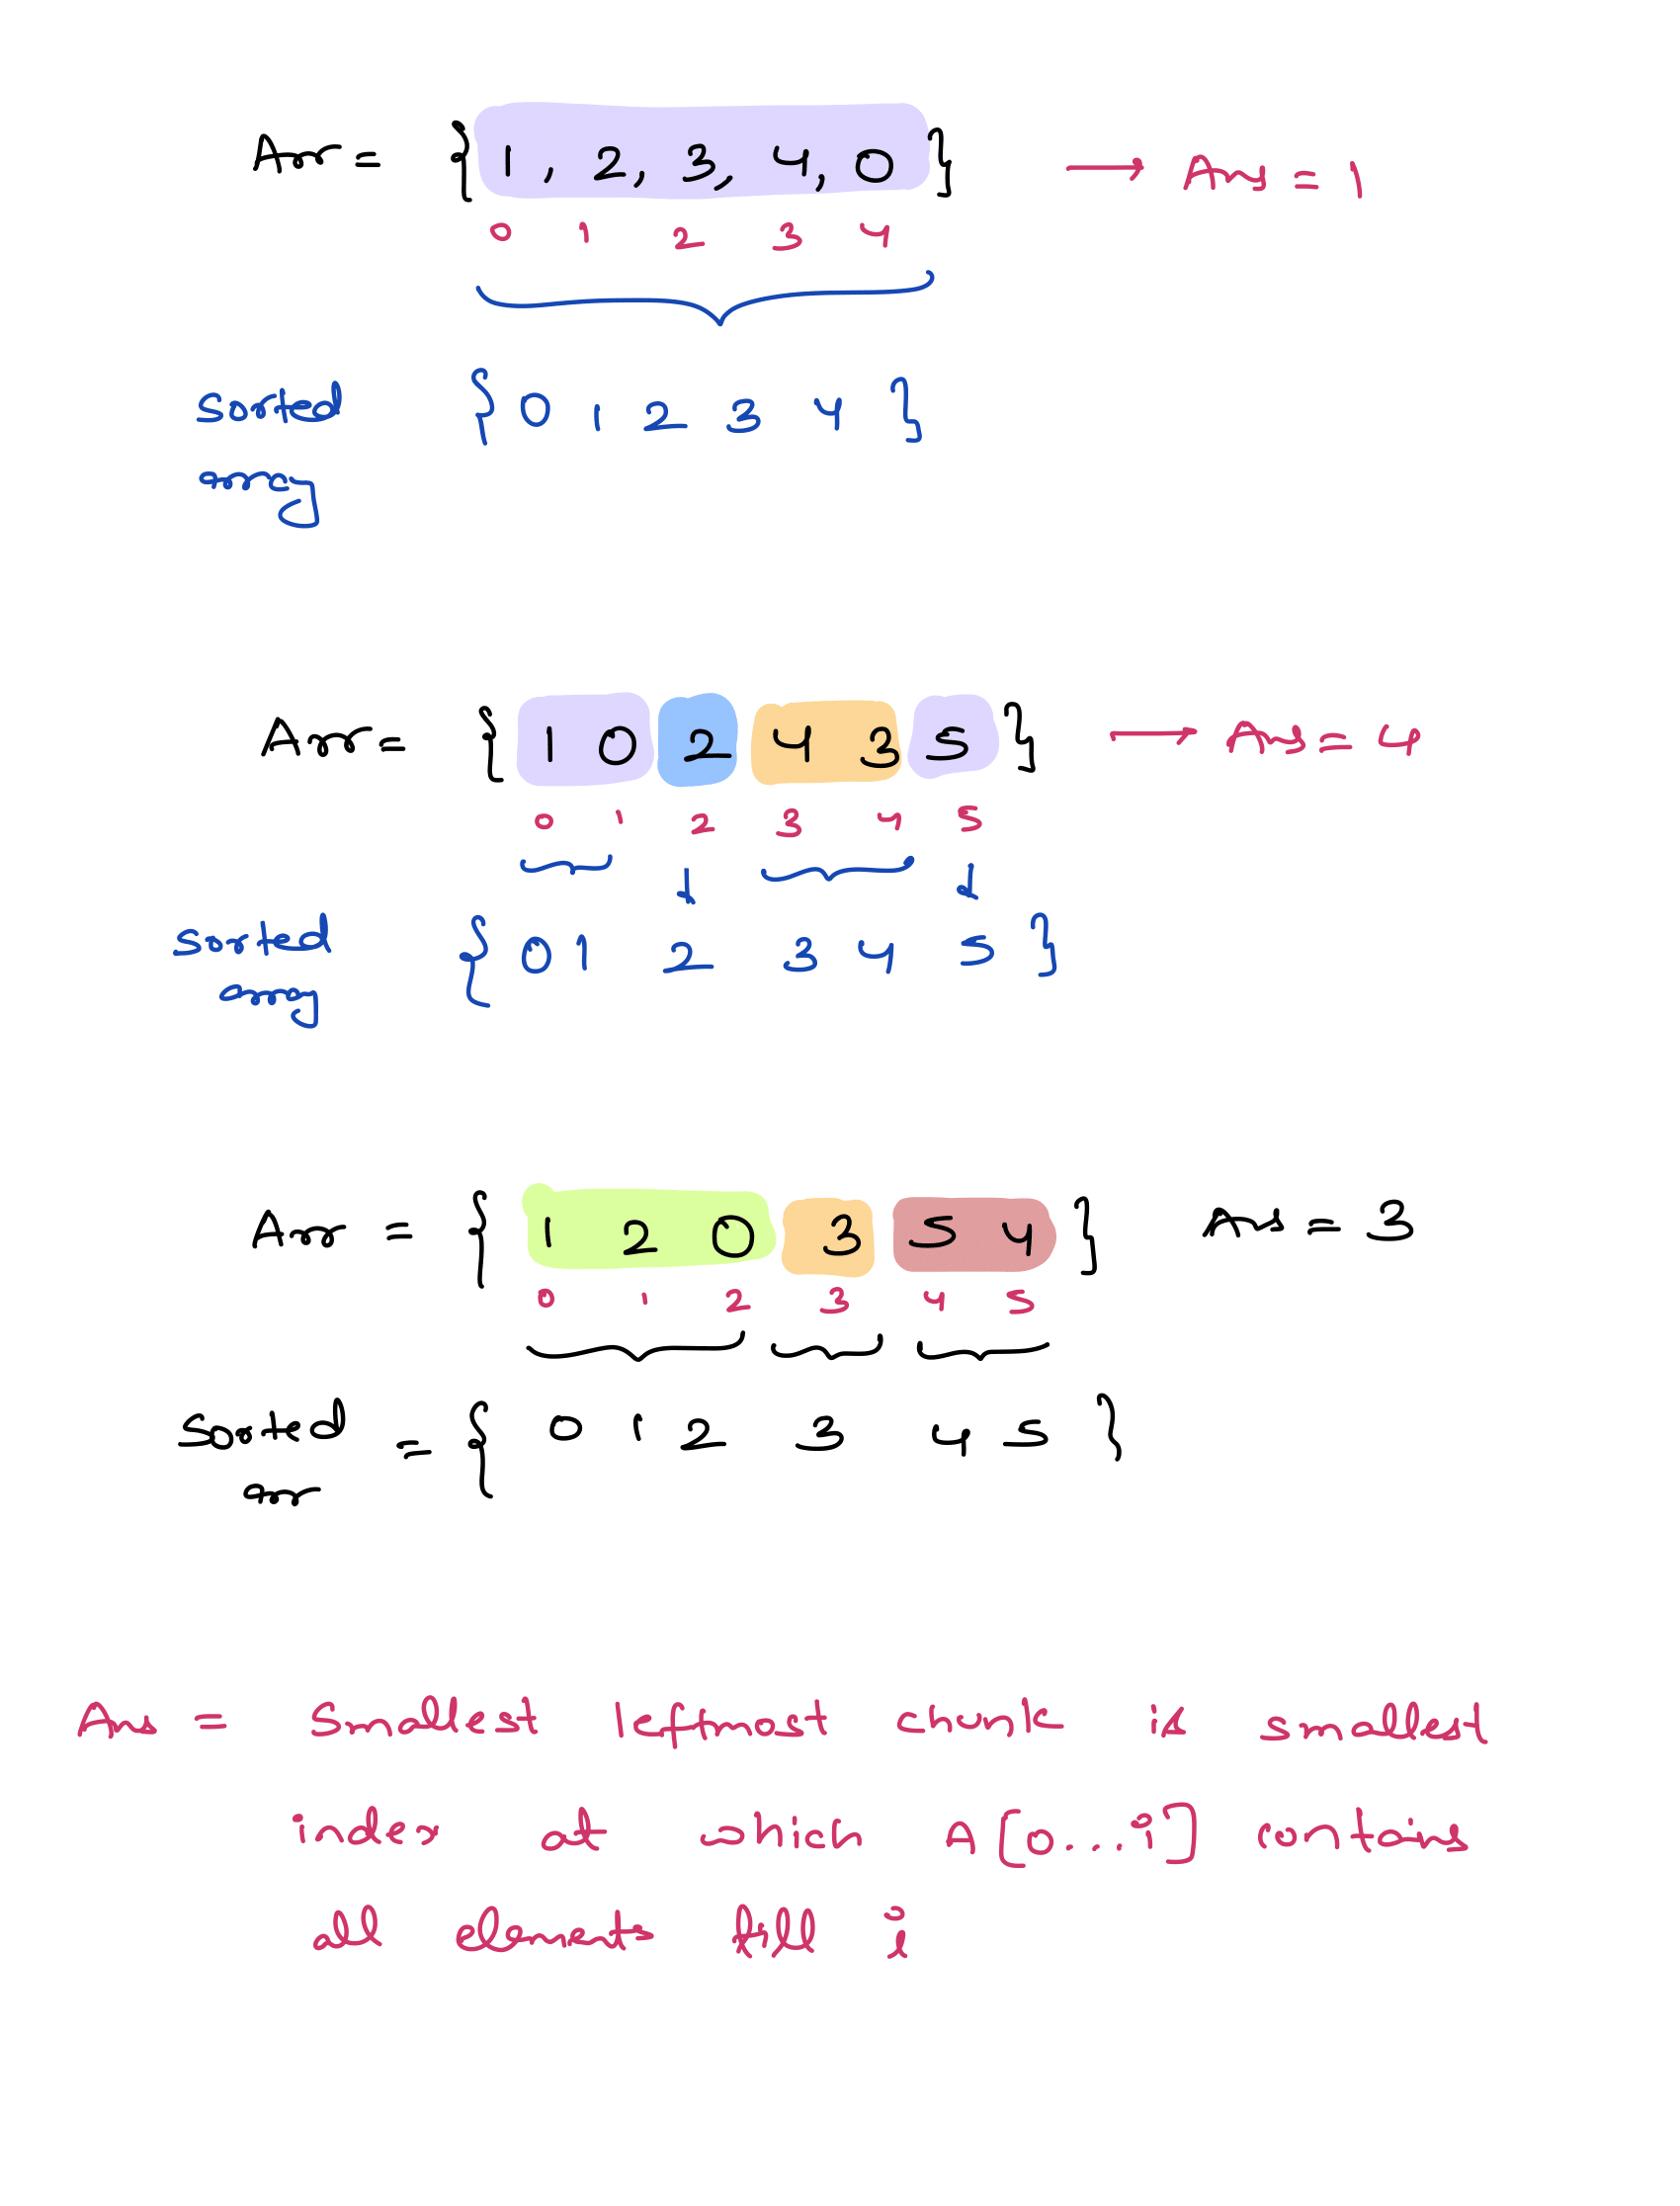 Arr = {1, 2, 3, 4, 0} → Ans = 1
0 1 2 3 4
sorted { 0 1 2 3 4 }
array
Arr = { 1 0 2 4 3 5 } → Ans = 4
0 1 2 3 4 5
sorted { 0 1 2 3 4 5 }
array
Arr = { 1 2 0 3 5 4 } Ans = 3
0 1 2 3 4 5
Sorted = { 0 1 2 3 4 5 }
arr
Ans = Smallest leftmost chunk is smallest
index at which A[0...i] contains
all elements till i